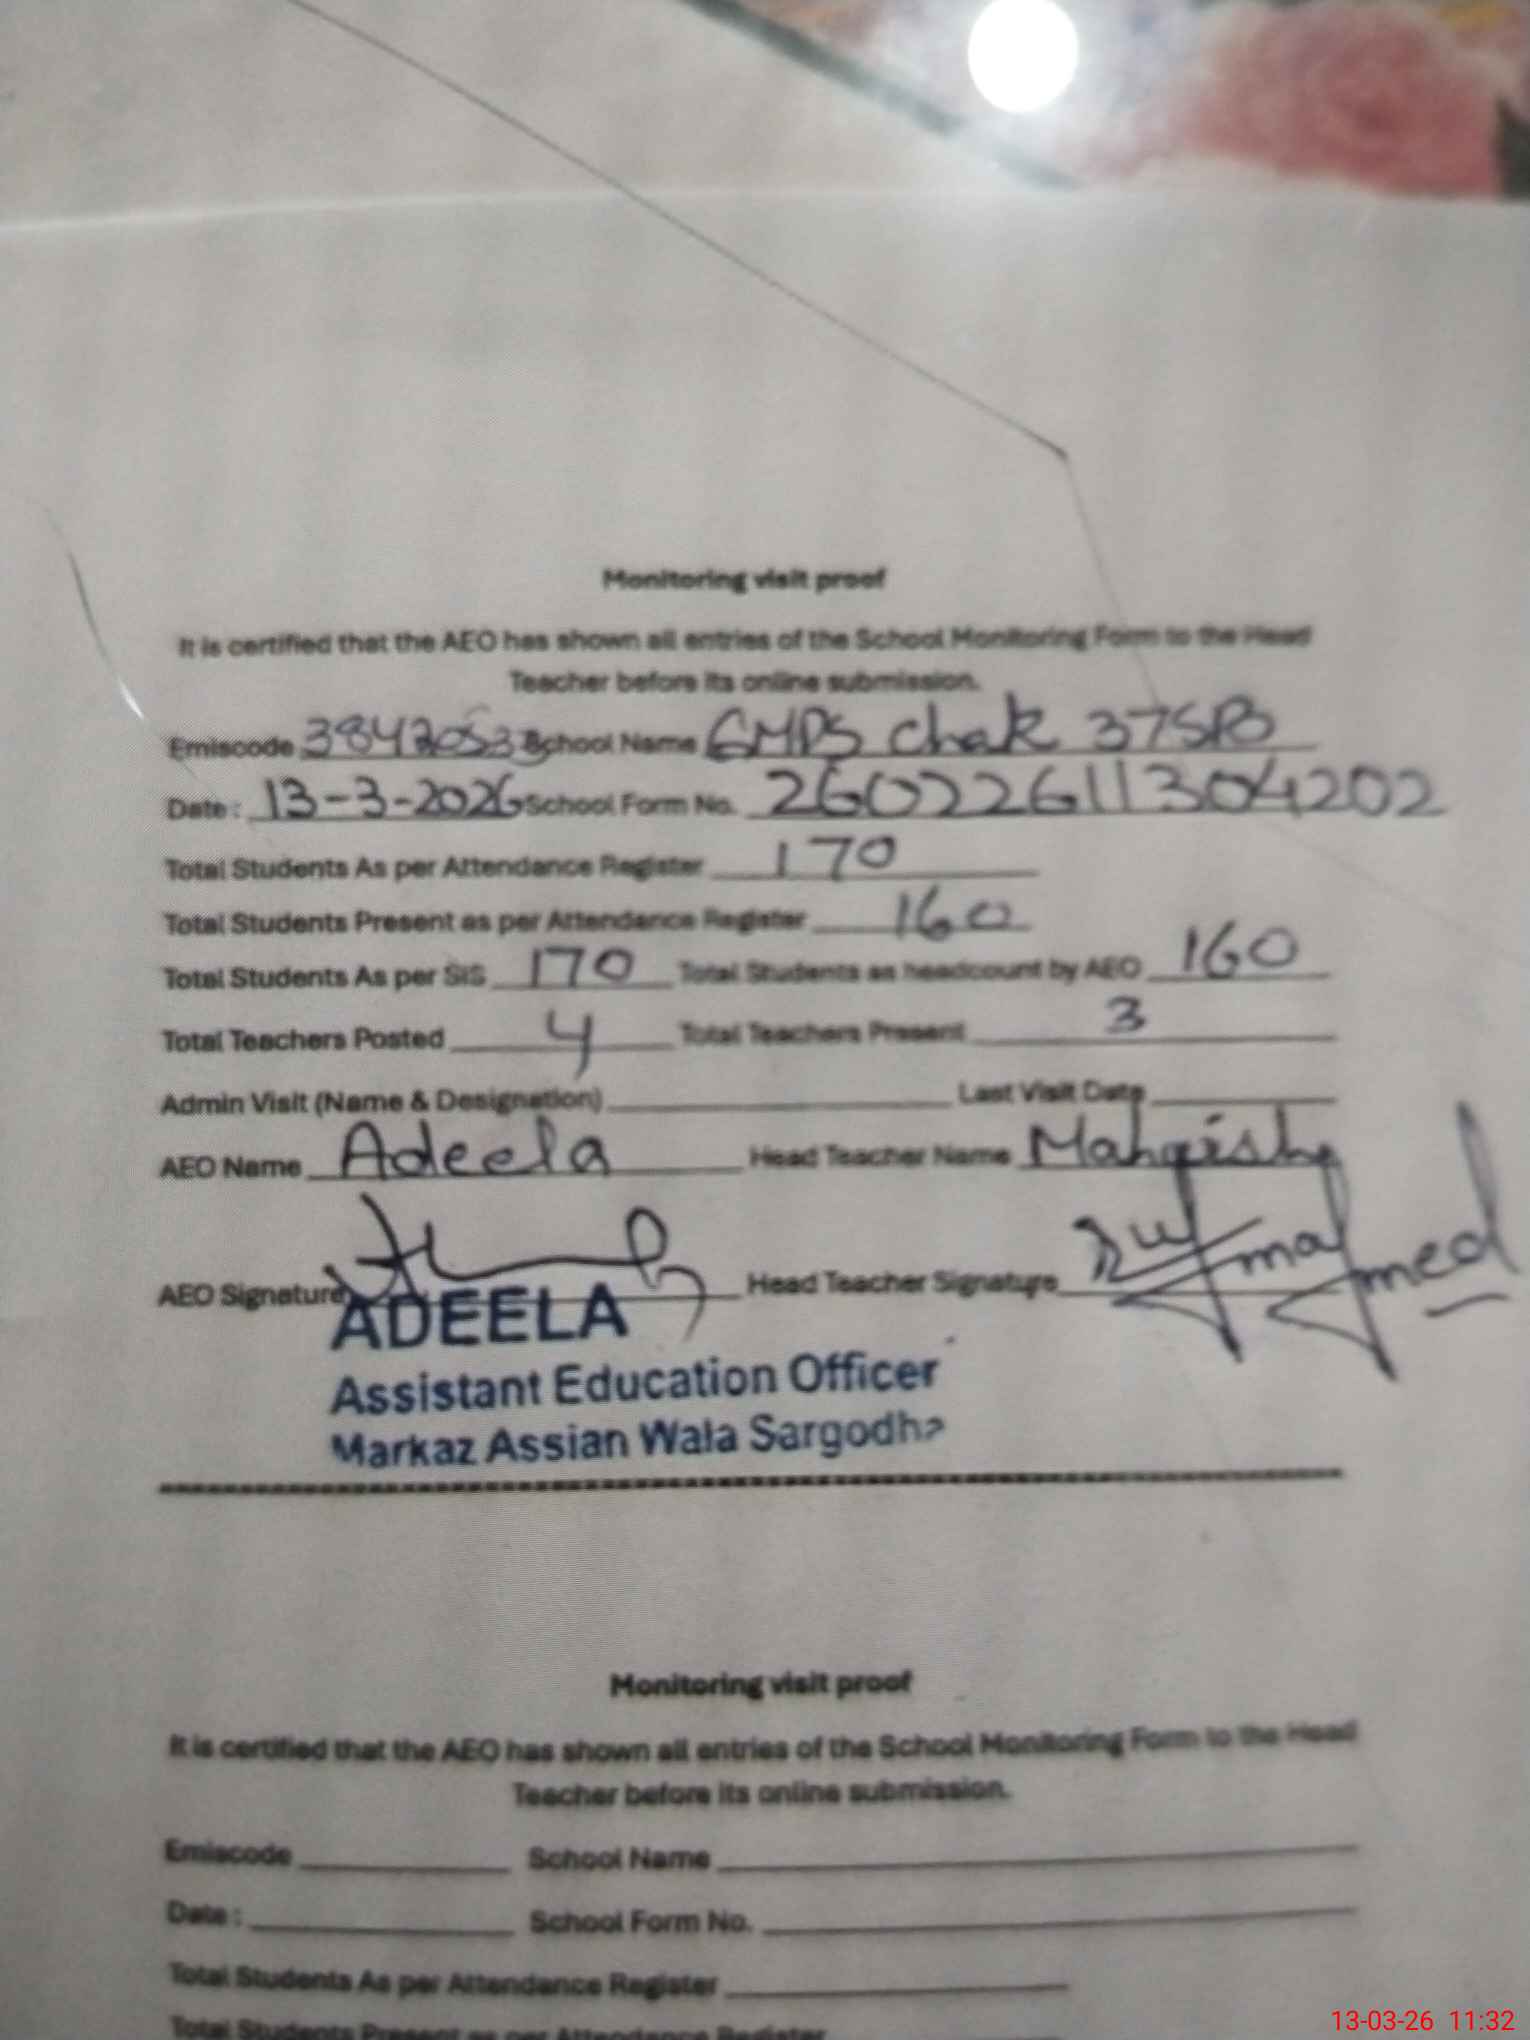 Monitoring visit proof
It is certified that the AEO has shown all entries of the School Monitoring Form to the Head
Teacher before its online submission.
Emiscode School Name GMPS Chak 37SB
Date : 13-3-2026 School Form No. 26022611304202
Total Students As per Attendance Register 170
Total Students Present as per Attendance Register 160
Total Students As per SIS 170 Total Students as headcount by AEO 160
Total Teachers Posted 4 Total Teachers Present 3
Admin Visit (Name & Designation) Last Visit Date
AEO Name Adeela Head Teacher Name
AEO Signature Head Teacher Signature
ADEELA
Assistant Education Officer
Markaz Assian Wala Sargodha
Monitoring visit proof
It is certified that the AEO has shown all entries of the School Monitoring Form to the Head
Teacher before its online submission.
Emiscode School Name
Date : School Form No.
Total Students As per Attendance Register
Total Students Present as per Attendance Register
13-03-26 11:32